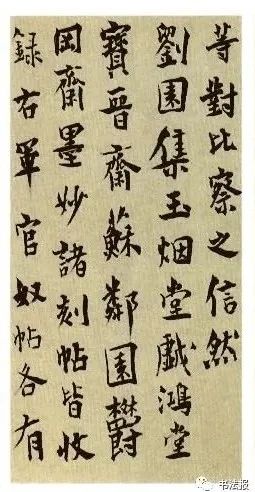 等對比察之信然
劉園集玉烟堂戲鴻堂
寶晉齋蘇鄰園欝
岡齋墨妙諸刻帖皆收
録右軍官奴帖各有
书法报